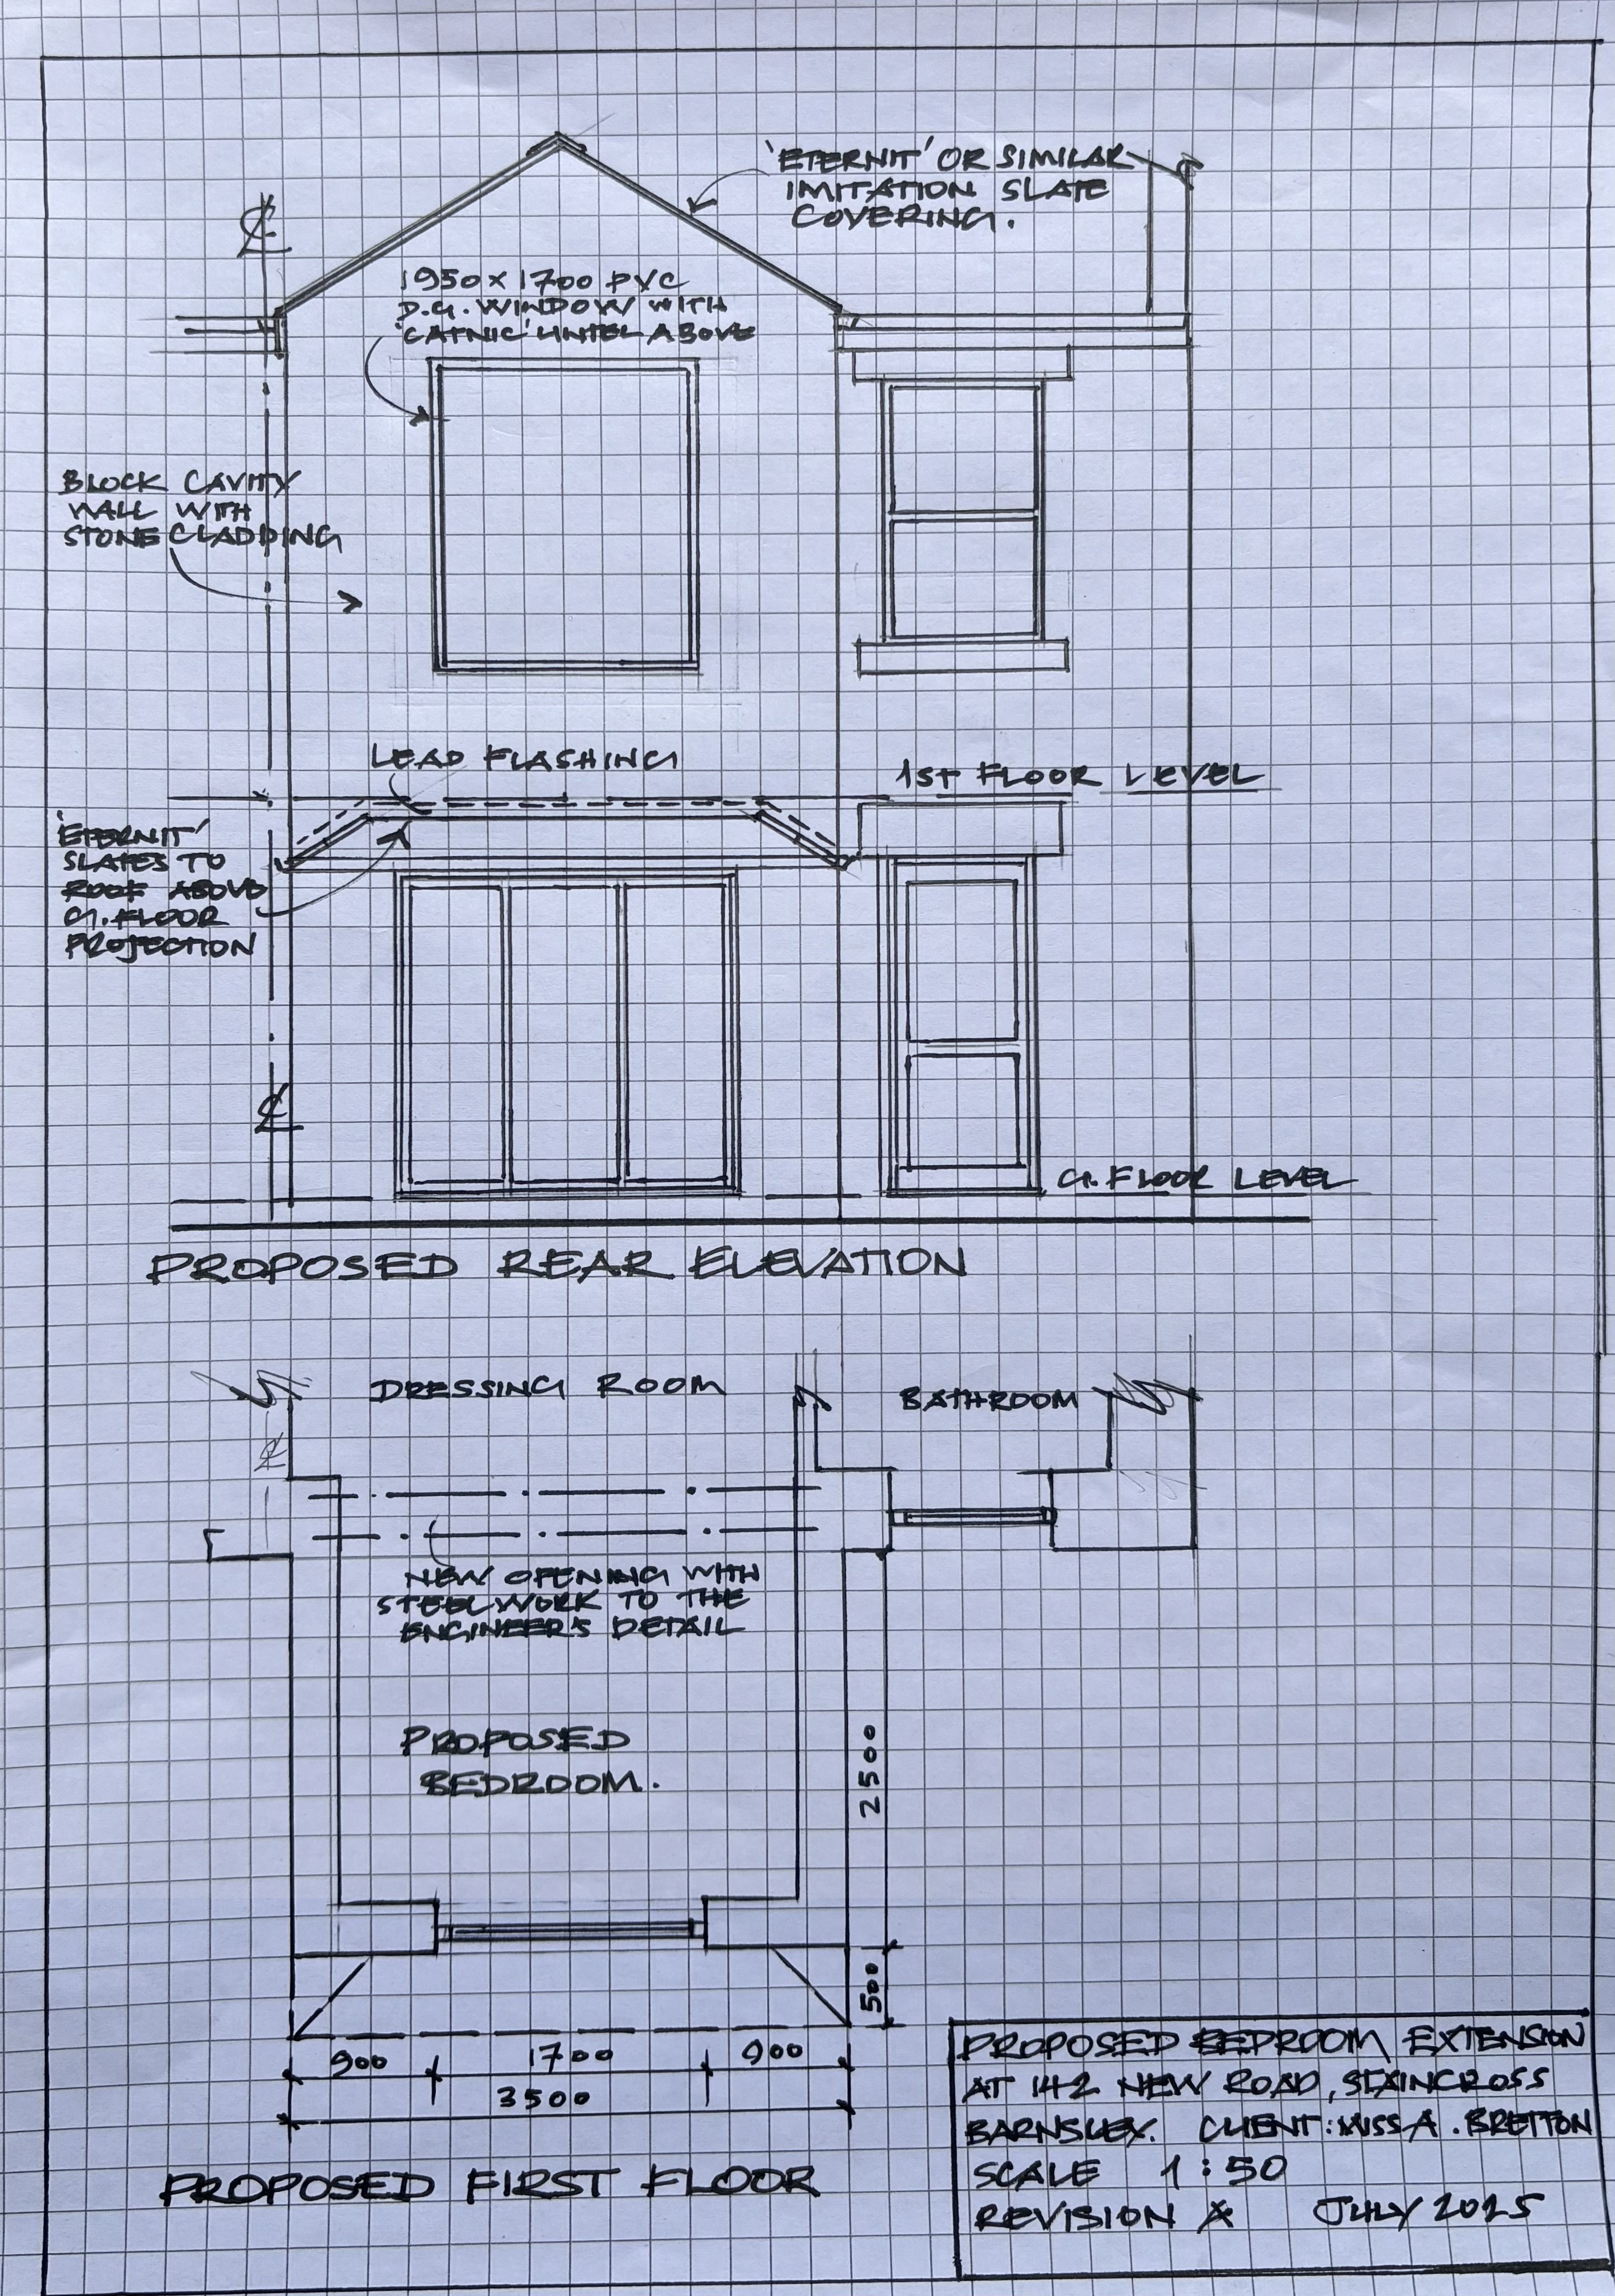 'ETERNIT' OR SIMILAR
IMITATION SLATE
COVERING.
℄
1950 x 1700 PVC
D.G. WINDOW WITH
'CATNIC' LINTEL ABOVE
BLOCK CAVITY
WALL WITH
STONE CLADDING
LEAD FLASHING
1ST FLOOR LEVEL
'ETERNIT'
SLATES TO
ROOF ABOVE
G.FLOOR
PROJECTION
℄
G.FLOOR LEVEL
PROPOSED REAR ELEVATION
DRESSING ROOM
BATHROOM
℄
NEW OPENING WITH
STEELWORK TO THE
ENGINEER'S DETAIL
PROPOSED
BEDROOM.
2500
500
900 1700 900
3500
PROPOSED FIRST FLOOR
PROPOSED BEDROOM EXTENSION
AT 142 NEW ROAD, STAINCROSS
BARNSLEY. CLIENT: MISS A. BRETTON
SCALE 1:50
REVISION A JULY 2025